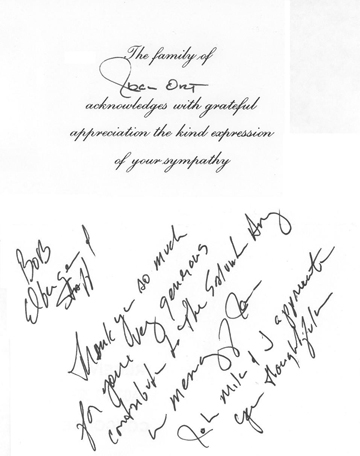 The family of
Joan Ort
acknowledges with grateful
appreciation the kind expression
of your sympathy
Bob
Staff
Thank you so much
for your very generous
contribution to the Salvation Army
in memory of Joan
Mike & I appreciate
your thoughtfulness